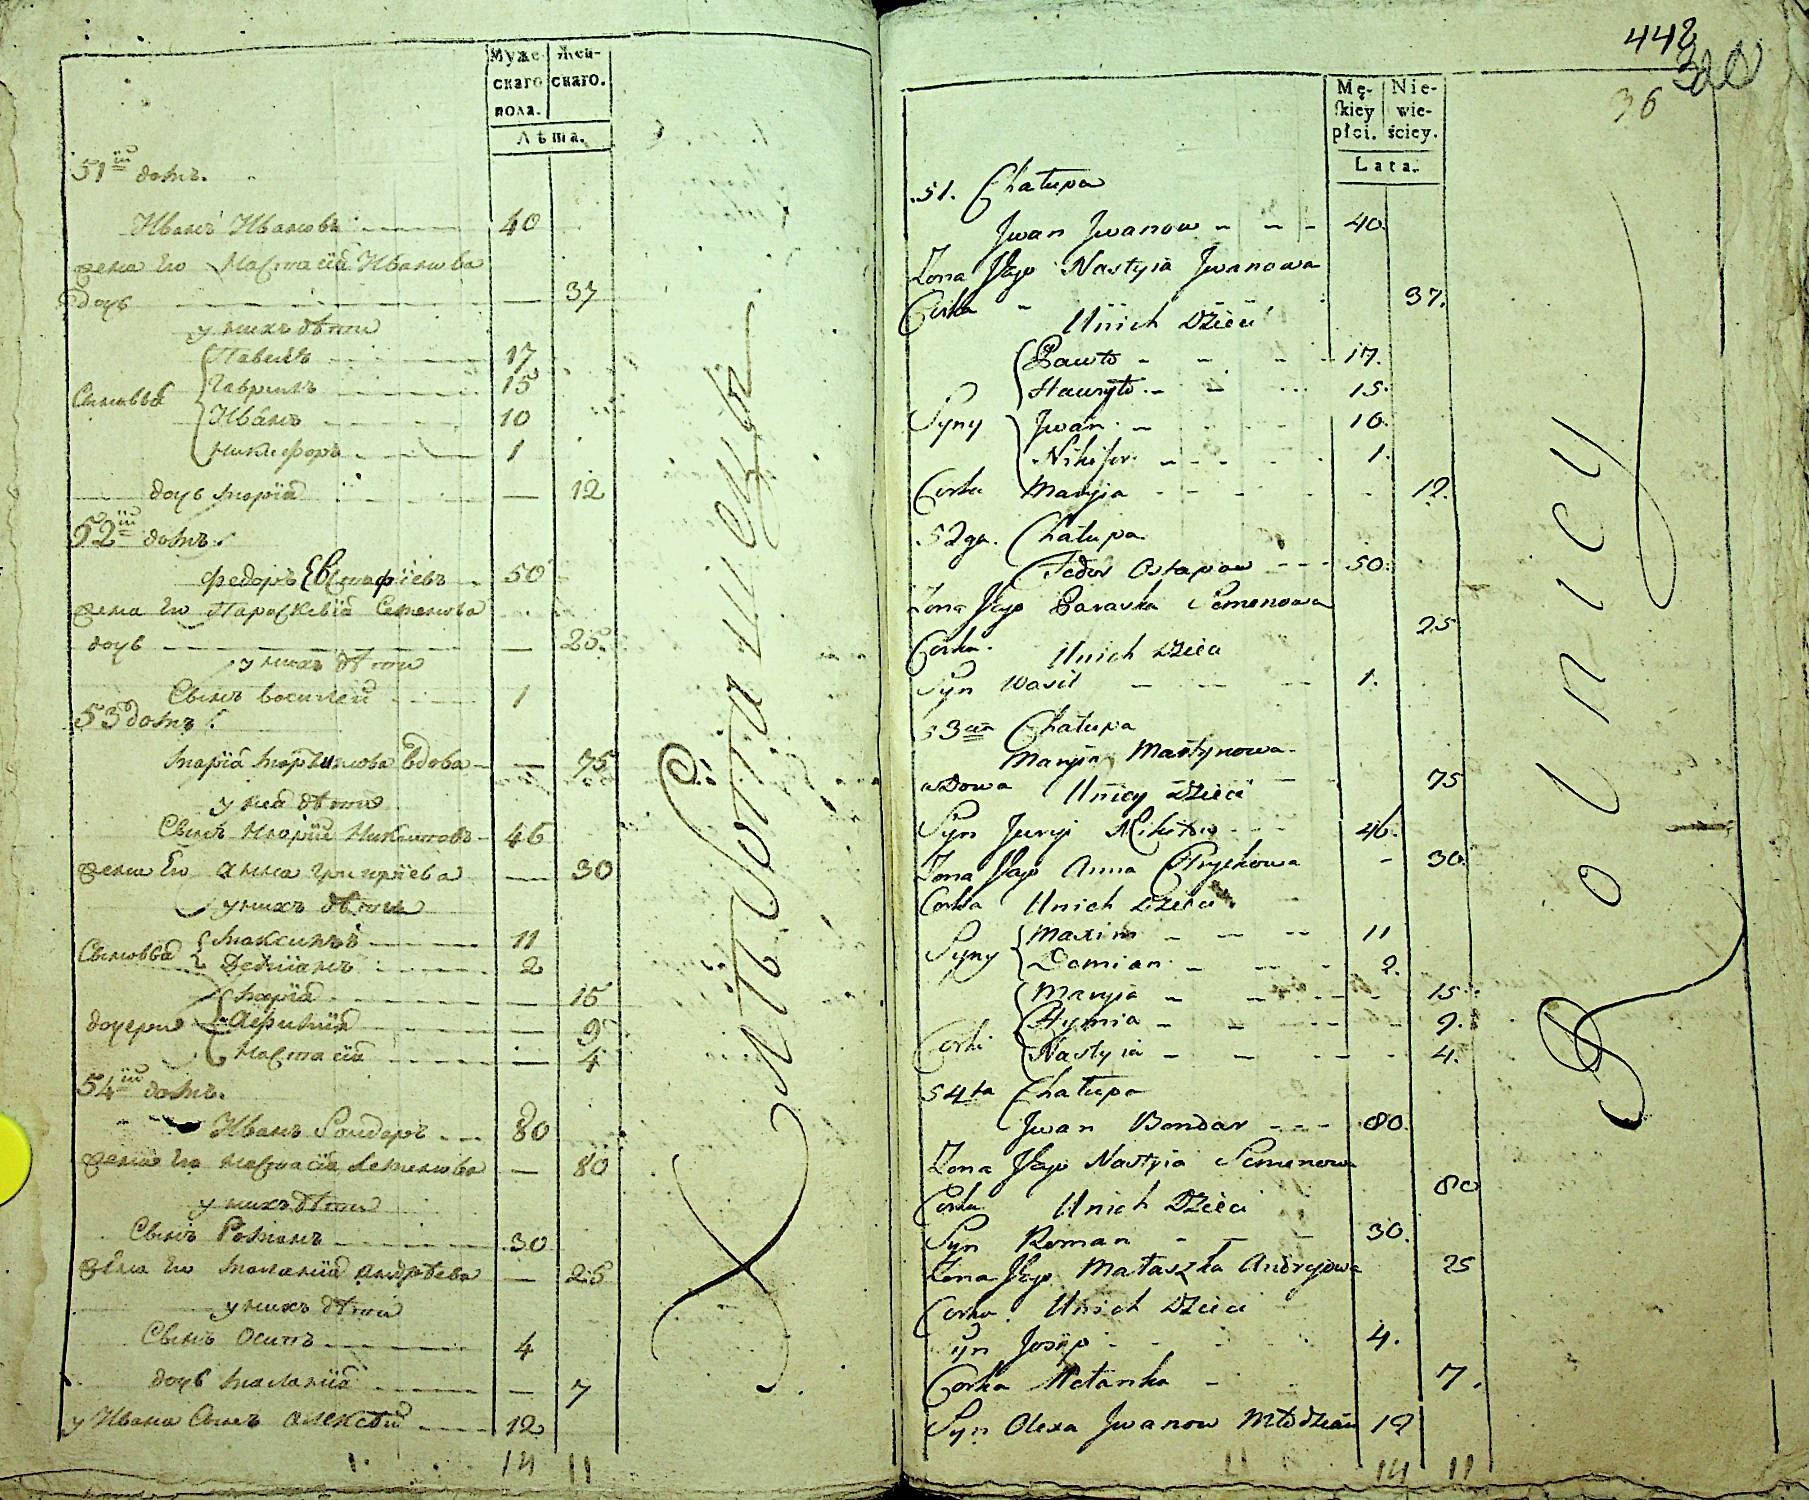 Муже- Жен-
скаго скаго.
пола.
Лѣта.
51й домъ.
Иванъ Ивановъ 40
жена Его Настасiя Иванова
дочь — 37
у нихъ дѣти
Павелъ 17
Сыновья Гаврилъ 15
Иванъ 10
Никифоръ 1
дочь Марiя — 12
52й домъ.
Федоръ Евстафiевъ 50
жена Его Параскевiя Семенова
дочь — 25.
у нихъ дѣти
Сынъ Василей 1
53 домъ.
Марiя Мартинова Вдова — 75
у неи дѣти
Сынъ Юрiй Никитовъ 46
жена Его Анна Григорiева — 30
у нихъ дѣти
Сыновья Максимъ 11
Демiанъ 2
Марiя — 15
дочери Афимiя — 9
Настасiя — 4
54й домъ.
Иванъ Бондарь 80
жена Его Настасiя Семенова — 80
у нихъ дѣти
Сынъ Романъ 30
жена Его Маланiя Андрѣева — 25
у нихъ дѣти
Сынъ Осипъ 4
дочь Маланiя — 7
у Ивана Сынъ Алексѣй 12
14 11
448
36
Mę- Nie-
skiey wie-
płci. ściey.
Lata.
51. Chałupa
Jwan Jwanow 40.
Zona Jego Nastyia Jwanowa
Corka 37.
Unich Dzieci
Pawło 17.
Hawryło 15.
Syny Jwan 10.
Nikifor 1.
Corka Maryia 12.
52ga. Chałupa
Fedor Ostapow 50.
Zona Jego Paraska Semenowa
25
Corka. Unich Dzieci
Syn Wasil 1.
53cia Chałupa
Maryia Martynowa
wDowa 75
Unicy Dzieci
Syn Juryi Nikitow 46.
Zona Jego Anna Hryckowa 30.
Corka Unich Dzieci
Maxim 11
Syny Domian 2.
Maryia 15.
Hymia 9.
Corki Nastyia 4.
54ta Chałupa
Jwan Bondar 80.
Zona Jego Nastyia Semenowa
80
Corka Unich Dzieci
Syn Roman 30.
Zona Jego Małaszka Andryiowa 25
Corka Unich Dzieci
Syn Josyp 4.
Corka Małanka 7.
Syn Olexa Jwanow Młodzian 12
14 11
Rolnicy